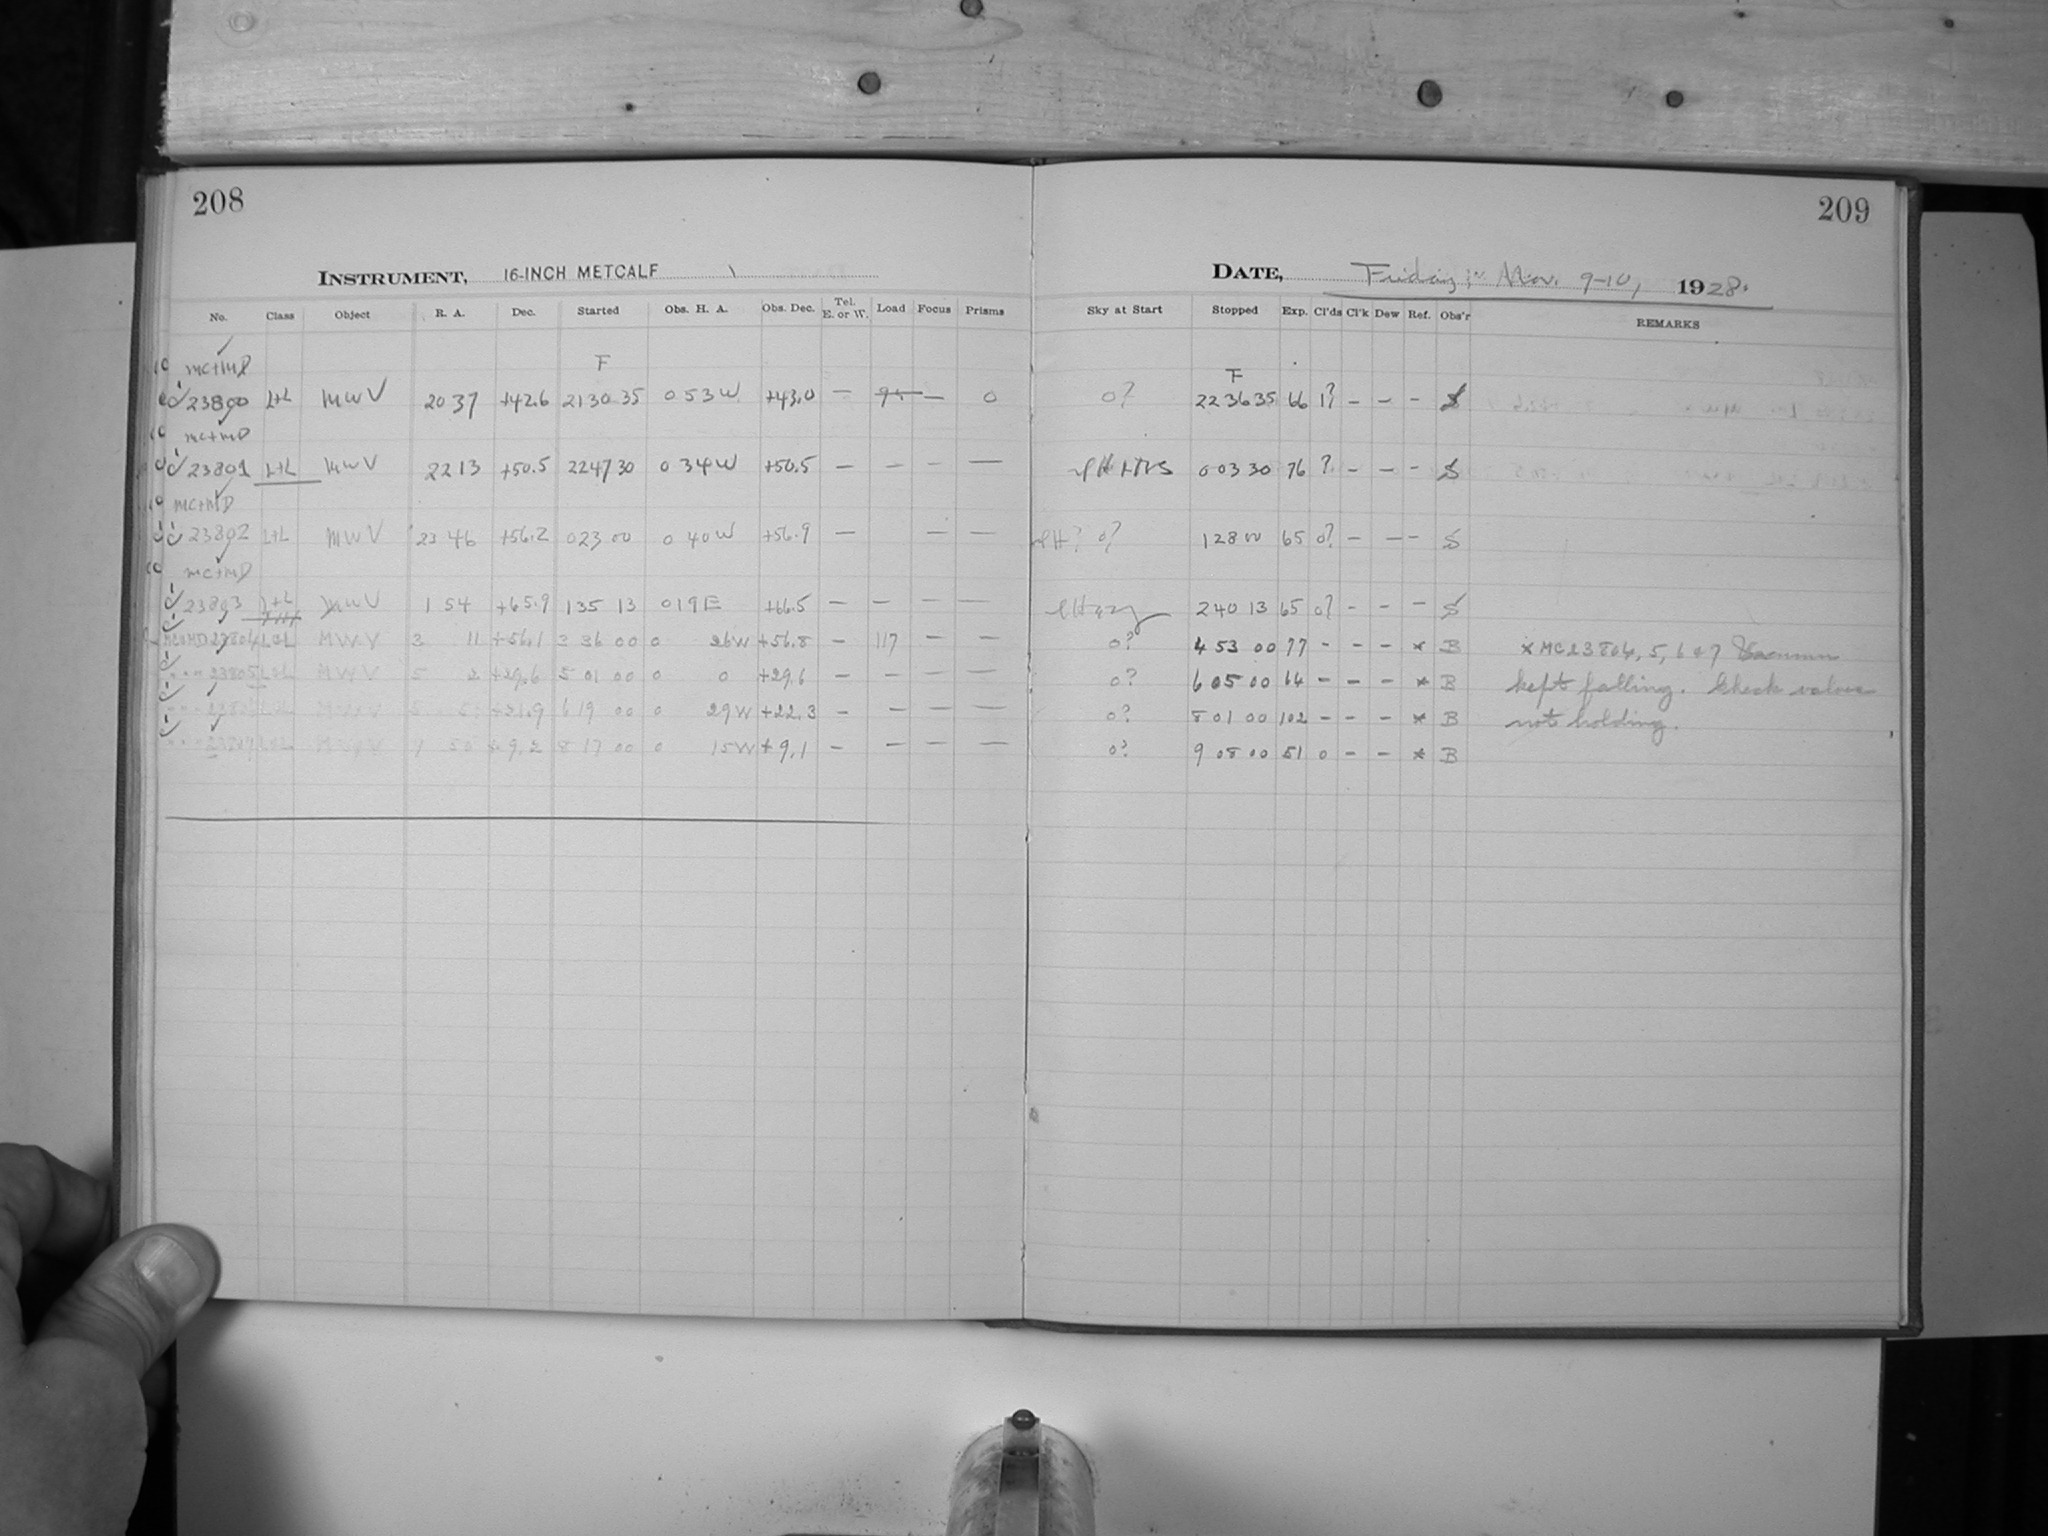 208
209
INSTRUMENT, 16-INCH METCALF
DATE, Friday Nov. 9-10, 1928.
No. Class Object R. A. Dec. Started Obs. H. A. Obs. Dec. Tel. E. or W. Load Focus Prisms Sky at Start Stopped Exp. Cl'ds Cl'k Dew Ref. Obs'r REMARKS
MC+MD F F
23800 L+L MWV 20 37 +42.6 21 30 35 0 53 W +43.0 — — 0 0? 22 36 35 66 1? – – – S
MC+MD
23801 L+L MWV 22 13 +50.5 22 47 30 0 34 W +50.5 — — — — 0 03 30 76 ? – – – S
MC+MD
23802 L+L MWV 23 46 +56.2 0 23 00 0 40 W +56.9 — — — 0? 1 28 00 65 0? – – – S
MC+MD
23803 L+L MWV 1 54 +65.9 1 35 13 0 19 E +66.5 — — — — Hazy 2 40 13 65 0? – – – S
MC&MD 23804 L&L MWV 3 11 +56.1 3 36 00 0 26 W +56.8 – 117 — — 0? 4 53 00 77 – – – * B * MC 23804, 5, 6 & 7 Vacuum
" " " 23805 L&L MWV 5 2 +29.6 5 01 00 0 0 +29.6 – — — — 0? 6 05 00 64 – – – * B kept falling. Check valves
" " " 23806 L&L MWV 5 51 +21.9 6 19 00 0 29 W +22.3 – — — — 0? 8 01 00 102 – – – * B not holding.
" " " 23807 L&L MWV 7 50 +9.2 8 17 00 0 15 W +9.1 – — — — 0? 9 08 00 51 0 – – * B